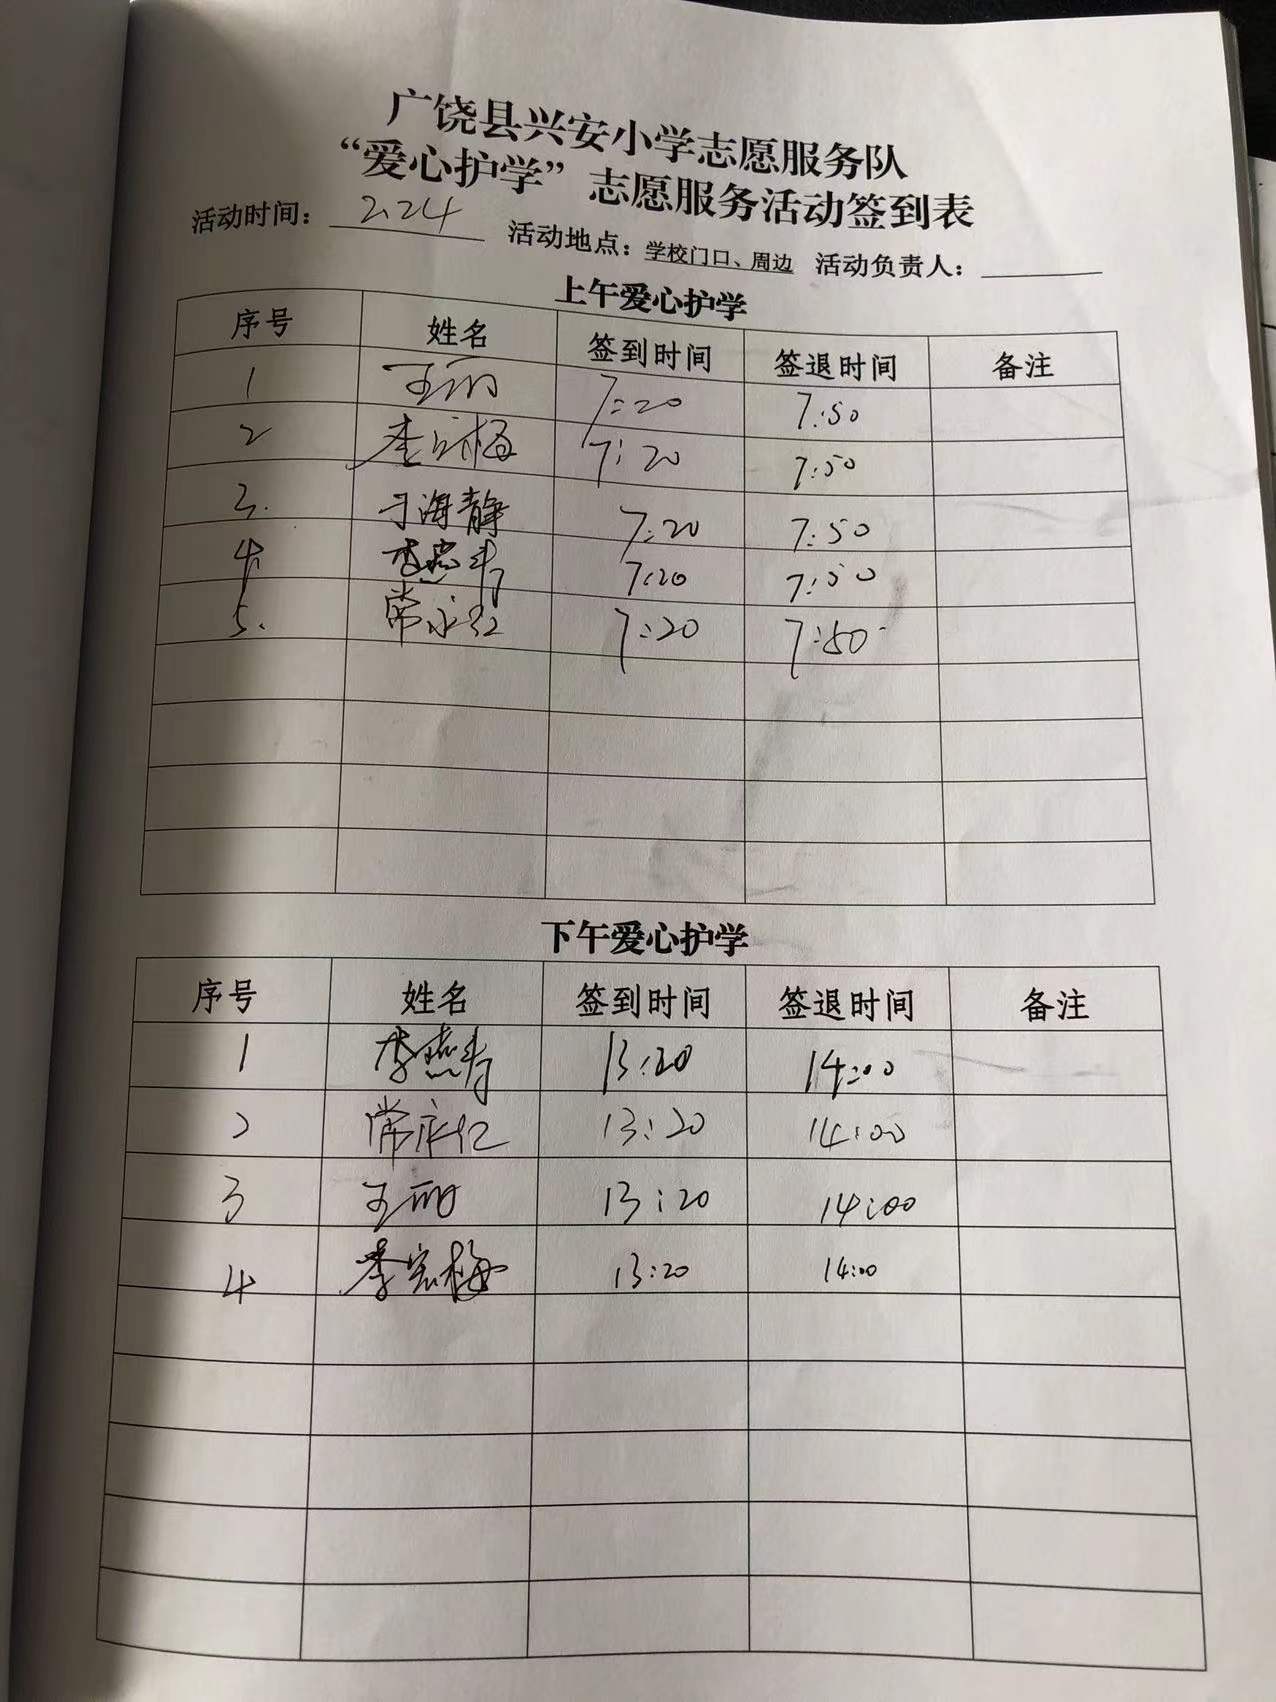 广饶县兴安小学志愿服务队
“爱心护学”志愿服务活动签到表
活动时间：2.24 活动地点：学校门口、周边 活动负责人：
上午爱心护学
序号 姓名 签到时间 签退时间 备注
1 王丽 7:20 7:50
2 李宏梅 7:20 7:50
3. 于海静 7:20 7:50
4. 李燕青 7:20 7:50
5. 常永红 7:20 7:50
下午爱心护学
序号 姓名 签到时间 签退时间 备注
1 李燕青 13:20 14:00
2 常永红 13:20 14:00
3 王丽 13:20 14:00
4 李宏梅 13:20 14:00